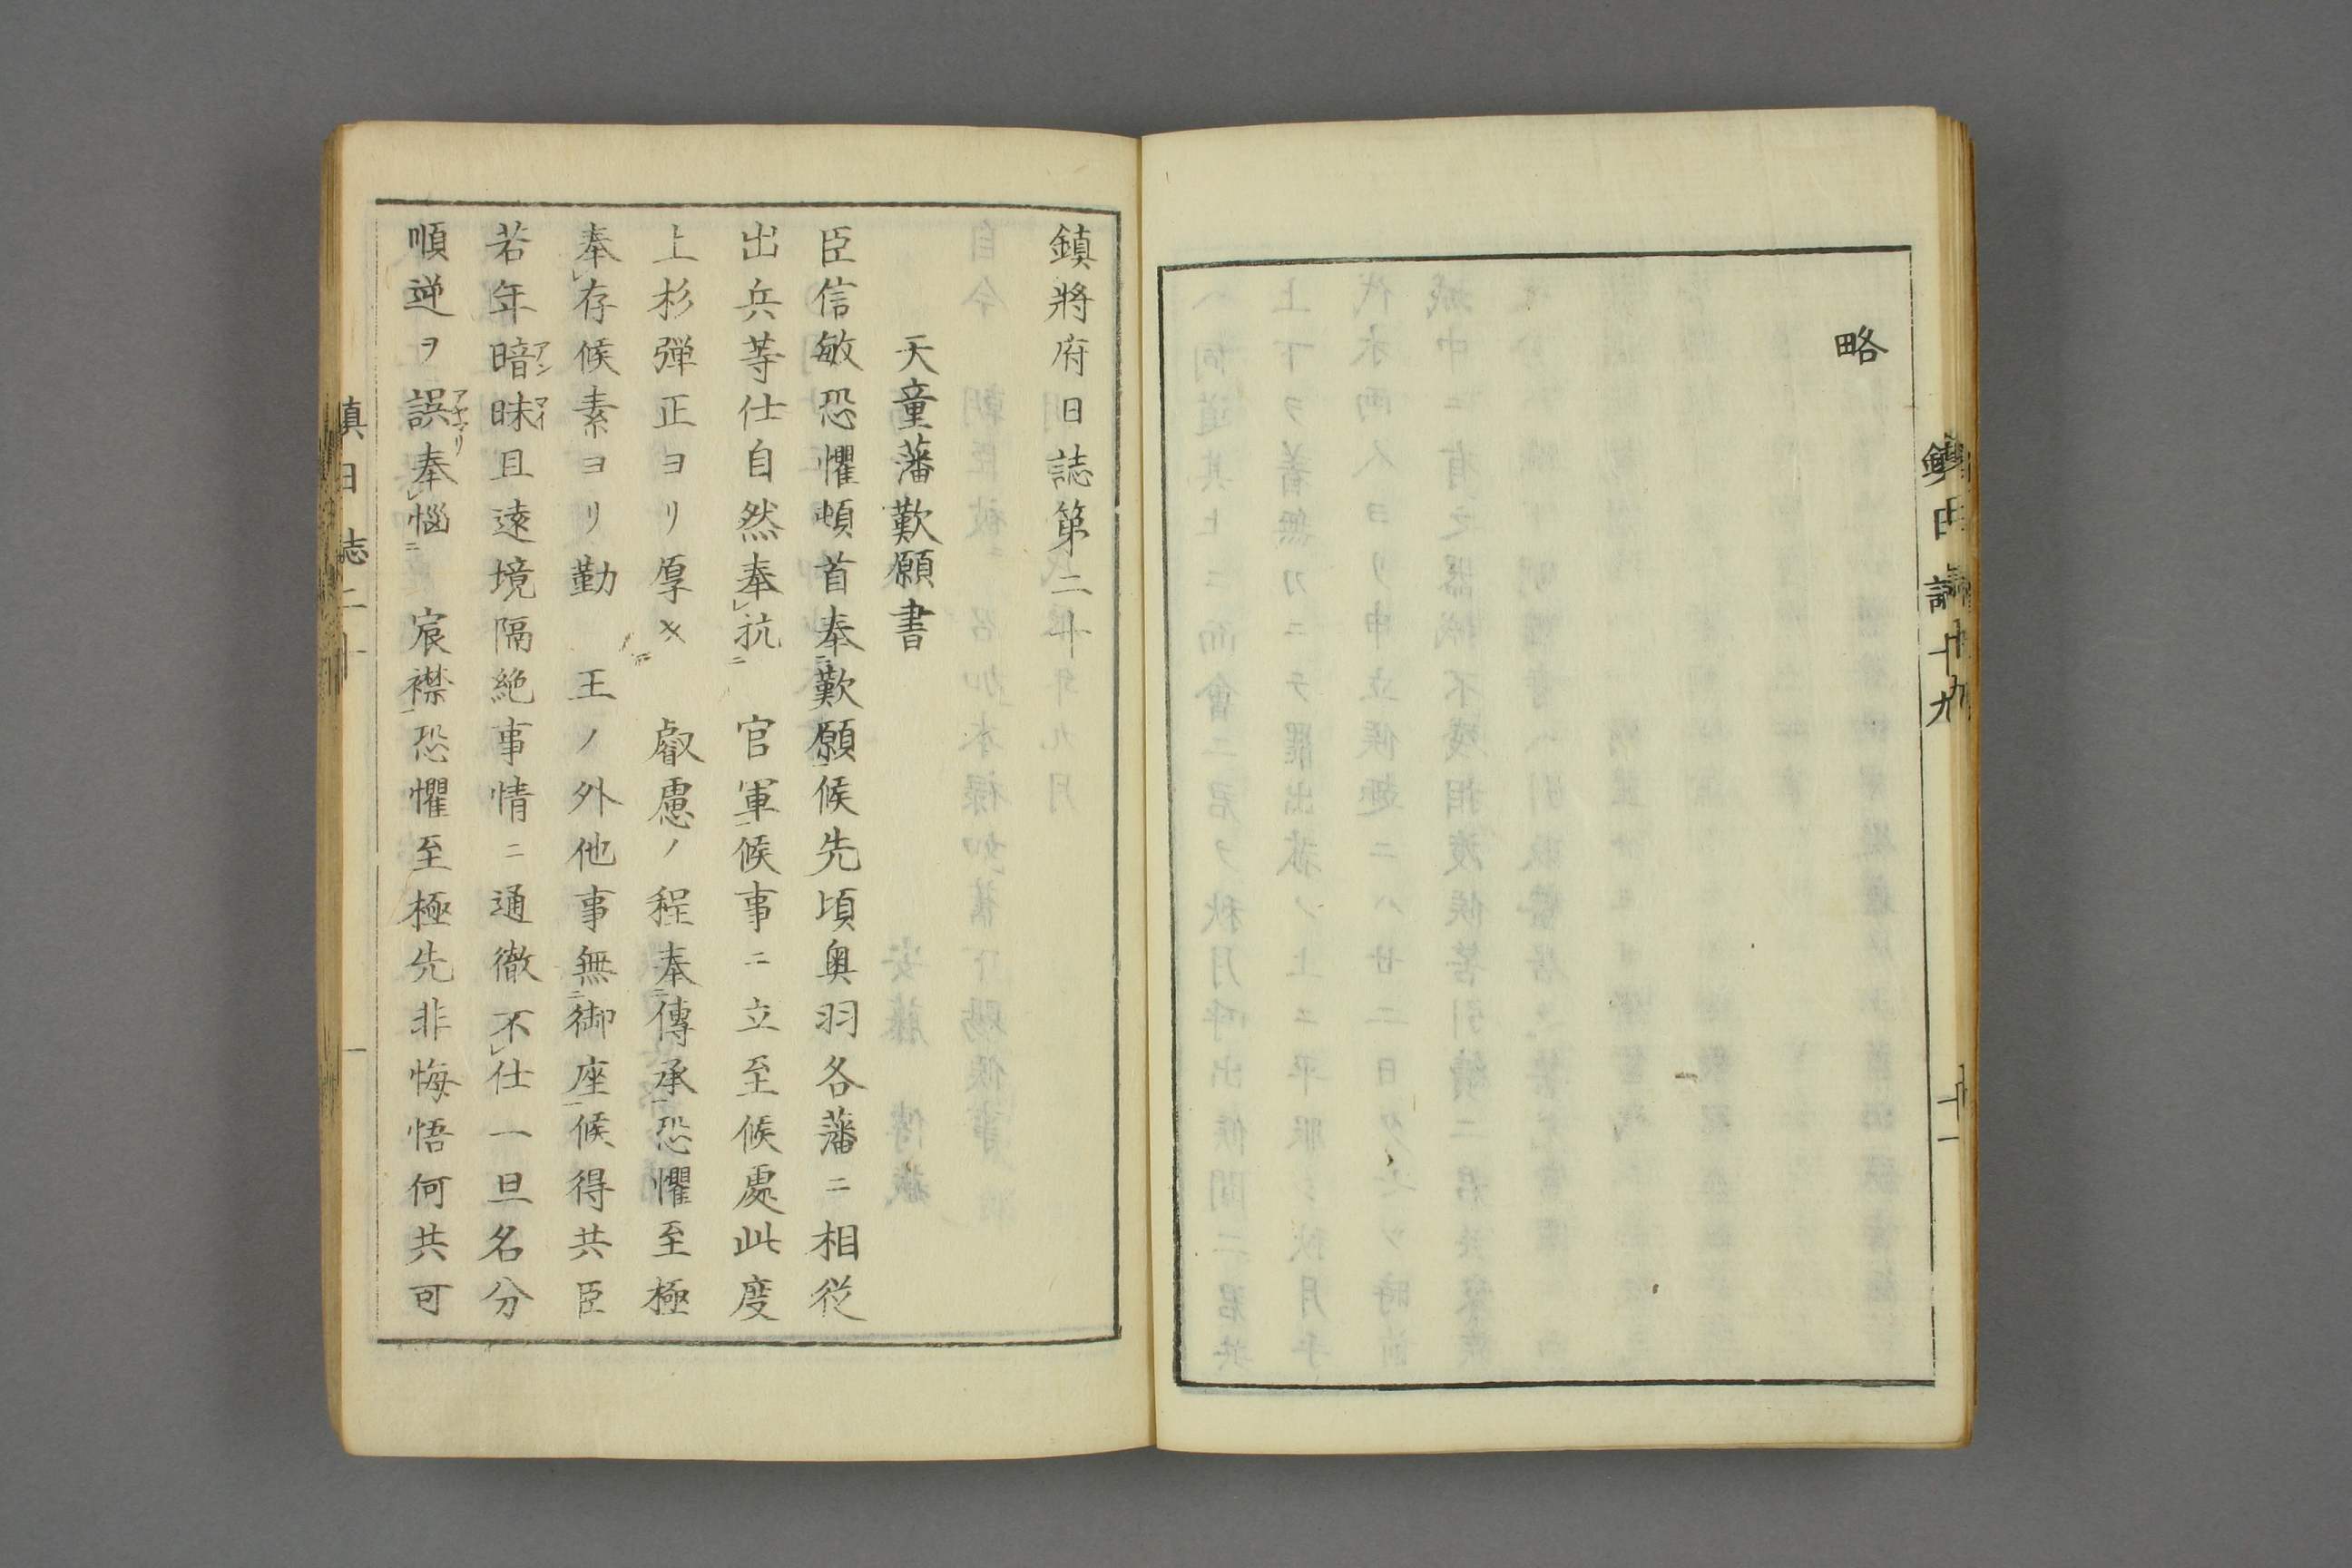 略
鎮日誌十九
十一
鎮將府日誌第二十
天童藩歎願書
臣信敏恐懼頓首奉㆓歎願㆒候先頃奥羽各藩ニ相從
出兵等仕自然奉㆑抗㆓官軍㆒候事ニ立至候處此度
上杉弾正ヨリ厚キ　叡慮ノ程奉㆓傳承㆒恐懼至極
奉㆑存候素ヨリ勤　王ノ外他事無㆓御座㆒候得共臣
若年暗昧且遠境隔絶事情ニ通徹不㆑仕一旦名分
順逆ヲ誤奉㆑惱㆓　宸襟㆒恐懼至極先非悔悟何共可
鎮日誌二十
一